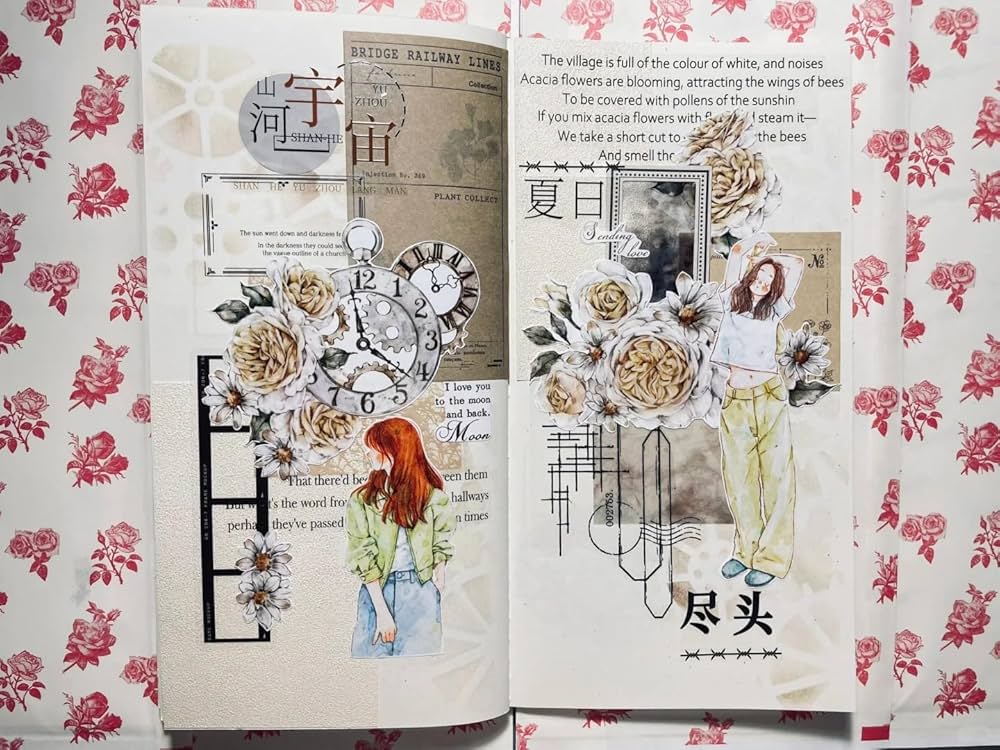 BRIDGE RAILWAY LINES
Collection
山河
宇宙
YU
ZHOU
SHAN-HE
Injection No. 369
PLANT COLLECT
SHAN HE YU ZHOU LANG MAN
The sun went down and darkness fe
In the darkness they could see
the vague outline of a church
12
1
2
3
4
5
6
7
I love you
to the moon
and back.
Moon
That there'd be
een them
's the word from
hallways
perha they've passed
n times
The village is full of the colour of white, and noises
Acacia flowers are blooming, attracting the wings of bees
To be covered with pollens of the sunshin
If you mix acacia flowers with steam it—
We take a short cut to the bees
And smell the
夏日
Sending
love
№
002763.
尽头